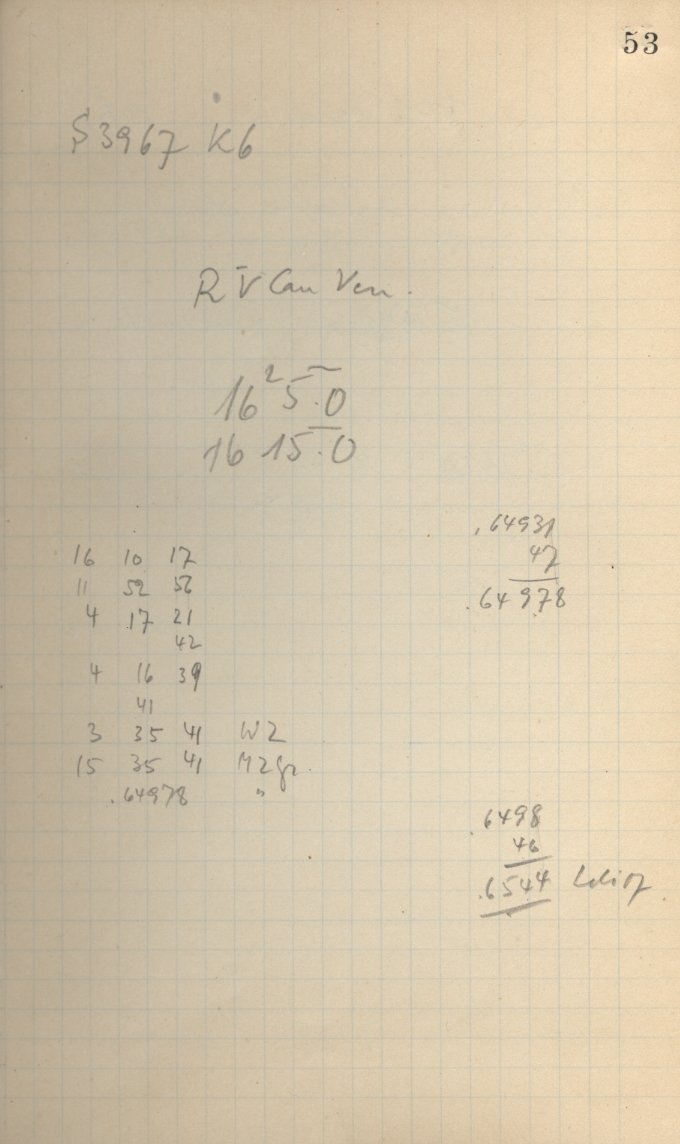 53
S 3967 K6
R V Can Ven.
16 2 5.0
16 15.0
16 10 17
11 52 56
4 17 21
42
4 16 39
41
3 35 41 WZ
15 35 41 MZgr.
.64978 "
.64931
47
.64978
.6498
46
.6544